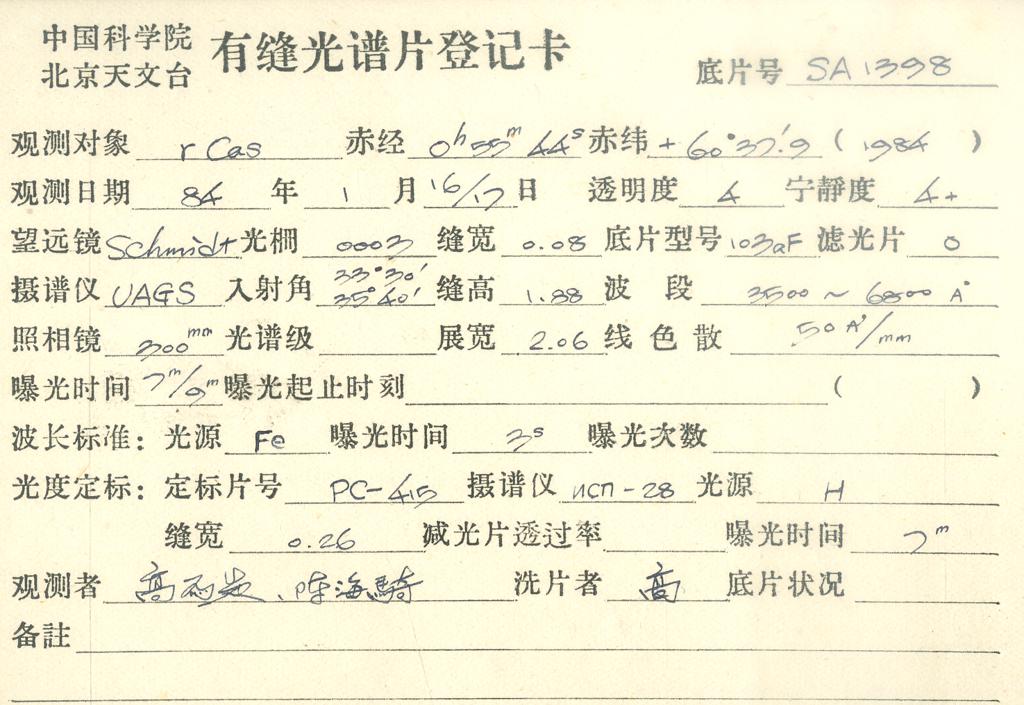 中国科学院
北京天文台
有缝光谱片登记卡
底片号 SA 1398
观测对象 r Cas 赤经 0h 55m 44s 赤纬 + 60° 37.'9 ( 1984 )
观测日期 84 年 1 月 16/17 日 透明度 4 宁静度 4+
望远镜 Schmidt 光栅 0003 缝宽 0.08 底片型号 103aF 滤光片 0
摄谱仪 UAGS 入射角 33°30' 35°40' 缝高 1.88 波段 3500 ~ 6800 A°
照相镜 300mm 光谱级 展宽 2.06 线色散 50 A°/mm
曝光时间 7m/9m 曝光起止时刻 ( )
波长标准: 光源 Fe 曝光时间 3s 曝光次数
光度定标: 定标片号 PC-415 摄谱仪 ИСП-28 光源 H
缝宽 0.26 减光片透过率 曝光时间 7m
观测者 高 、陈海騎 洗片者 高 底片状况
备註